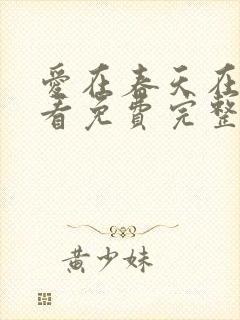 爱在春天在
看免費完整
黄少妹